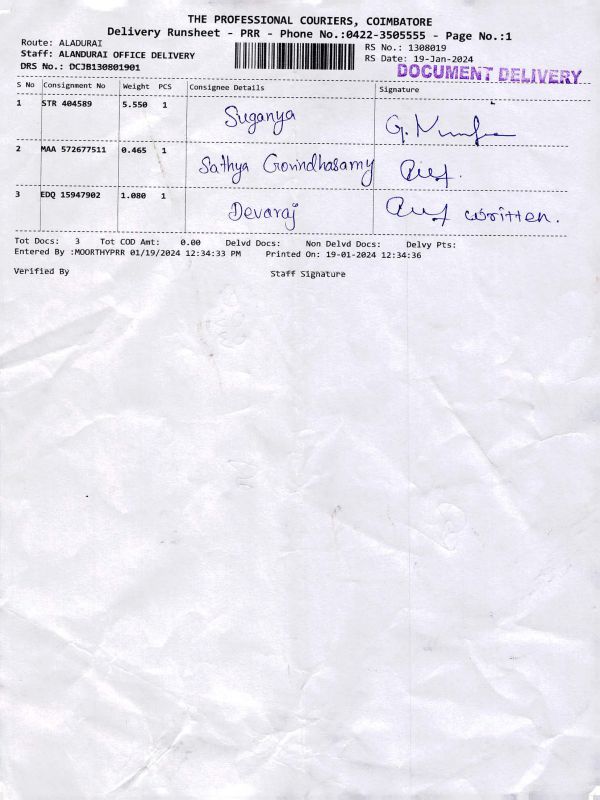 THE PROFESSIONAL COURIERS, COIMBATORE
Delivery Runsheet - PRR - Phone No.:0422-3505555 - Page No.:1
Route: ALADURAI
RS No.: 1308019
Staff: ALANDURAI OFFICE DELIVERY
RS Date: 19-Jan-2024
DRS No.: DCJB130801901
DOCUMENT DELIVERY
S No Consignment No Weight PCS Consignee Details Signature
1 STR 404589 5.550 1 Suganya
2 MAA 572677511 0.465 1 Sathya Govindhasamy
3 EDQ 15947902 1.080 1 Devaraj written.
Tot Docs: 3 Tot COD Amt: 0.00 Delvd Docs: Non Delvd Docs: Delvy Pts:
Entered By :MOORTHYPRR 01/19/2024 12:34:33 PM Printed On: 19-01-2024 12:34:36
Verified By Staff Signature